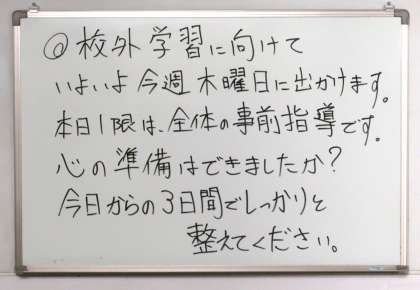 ◎校外学習に向けて
いよいよ今週木曜日に出かけます。
本日1限は、全体の事前指導です。
心の準備はできましたか?
今日からの3日間でしっかりと
整えてください。